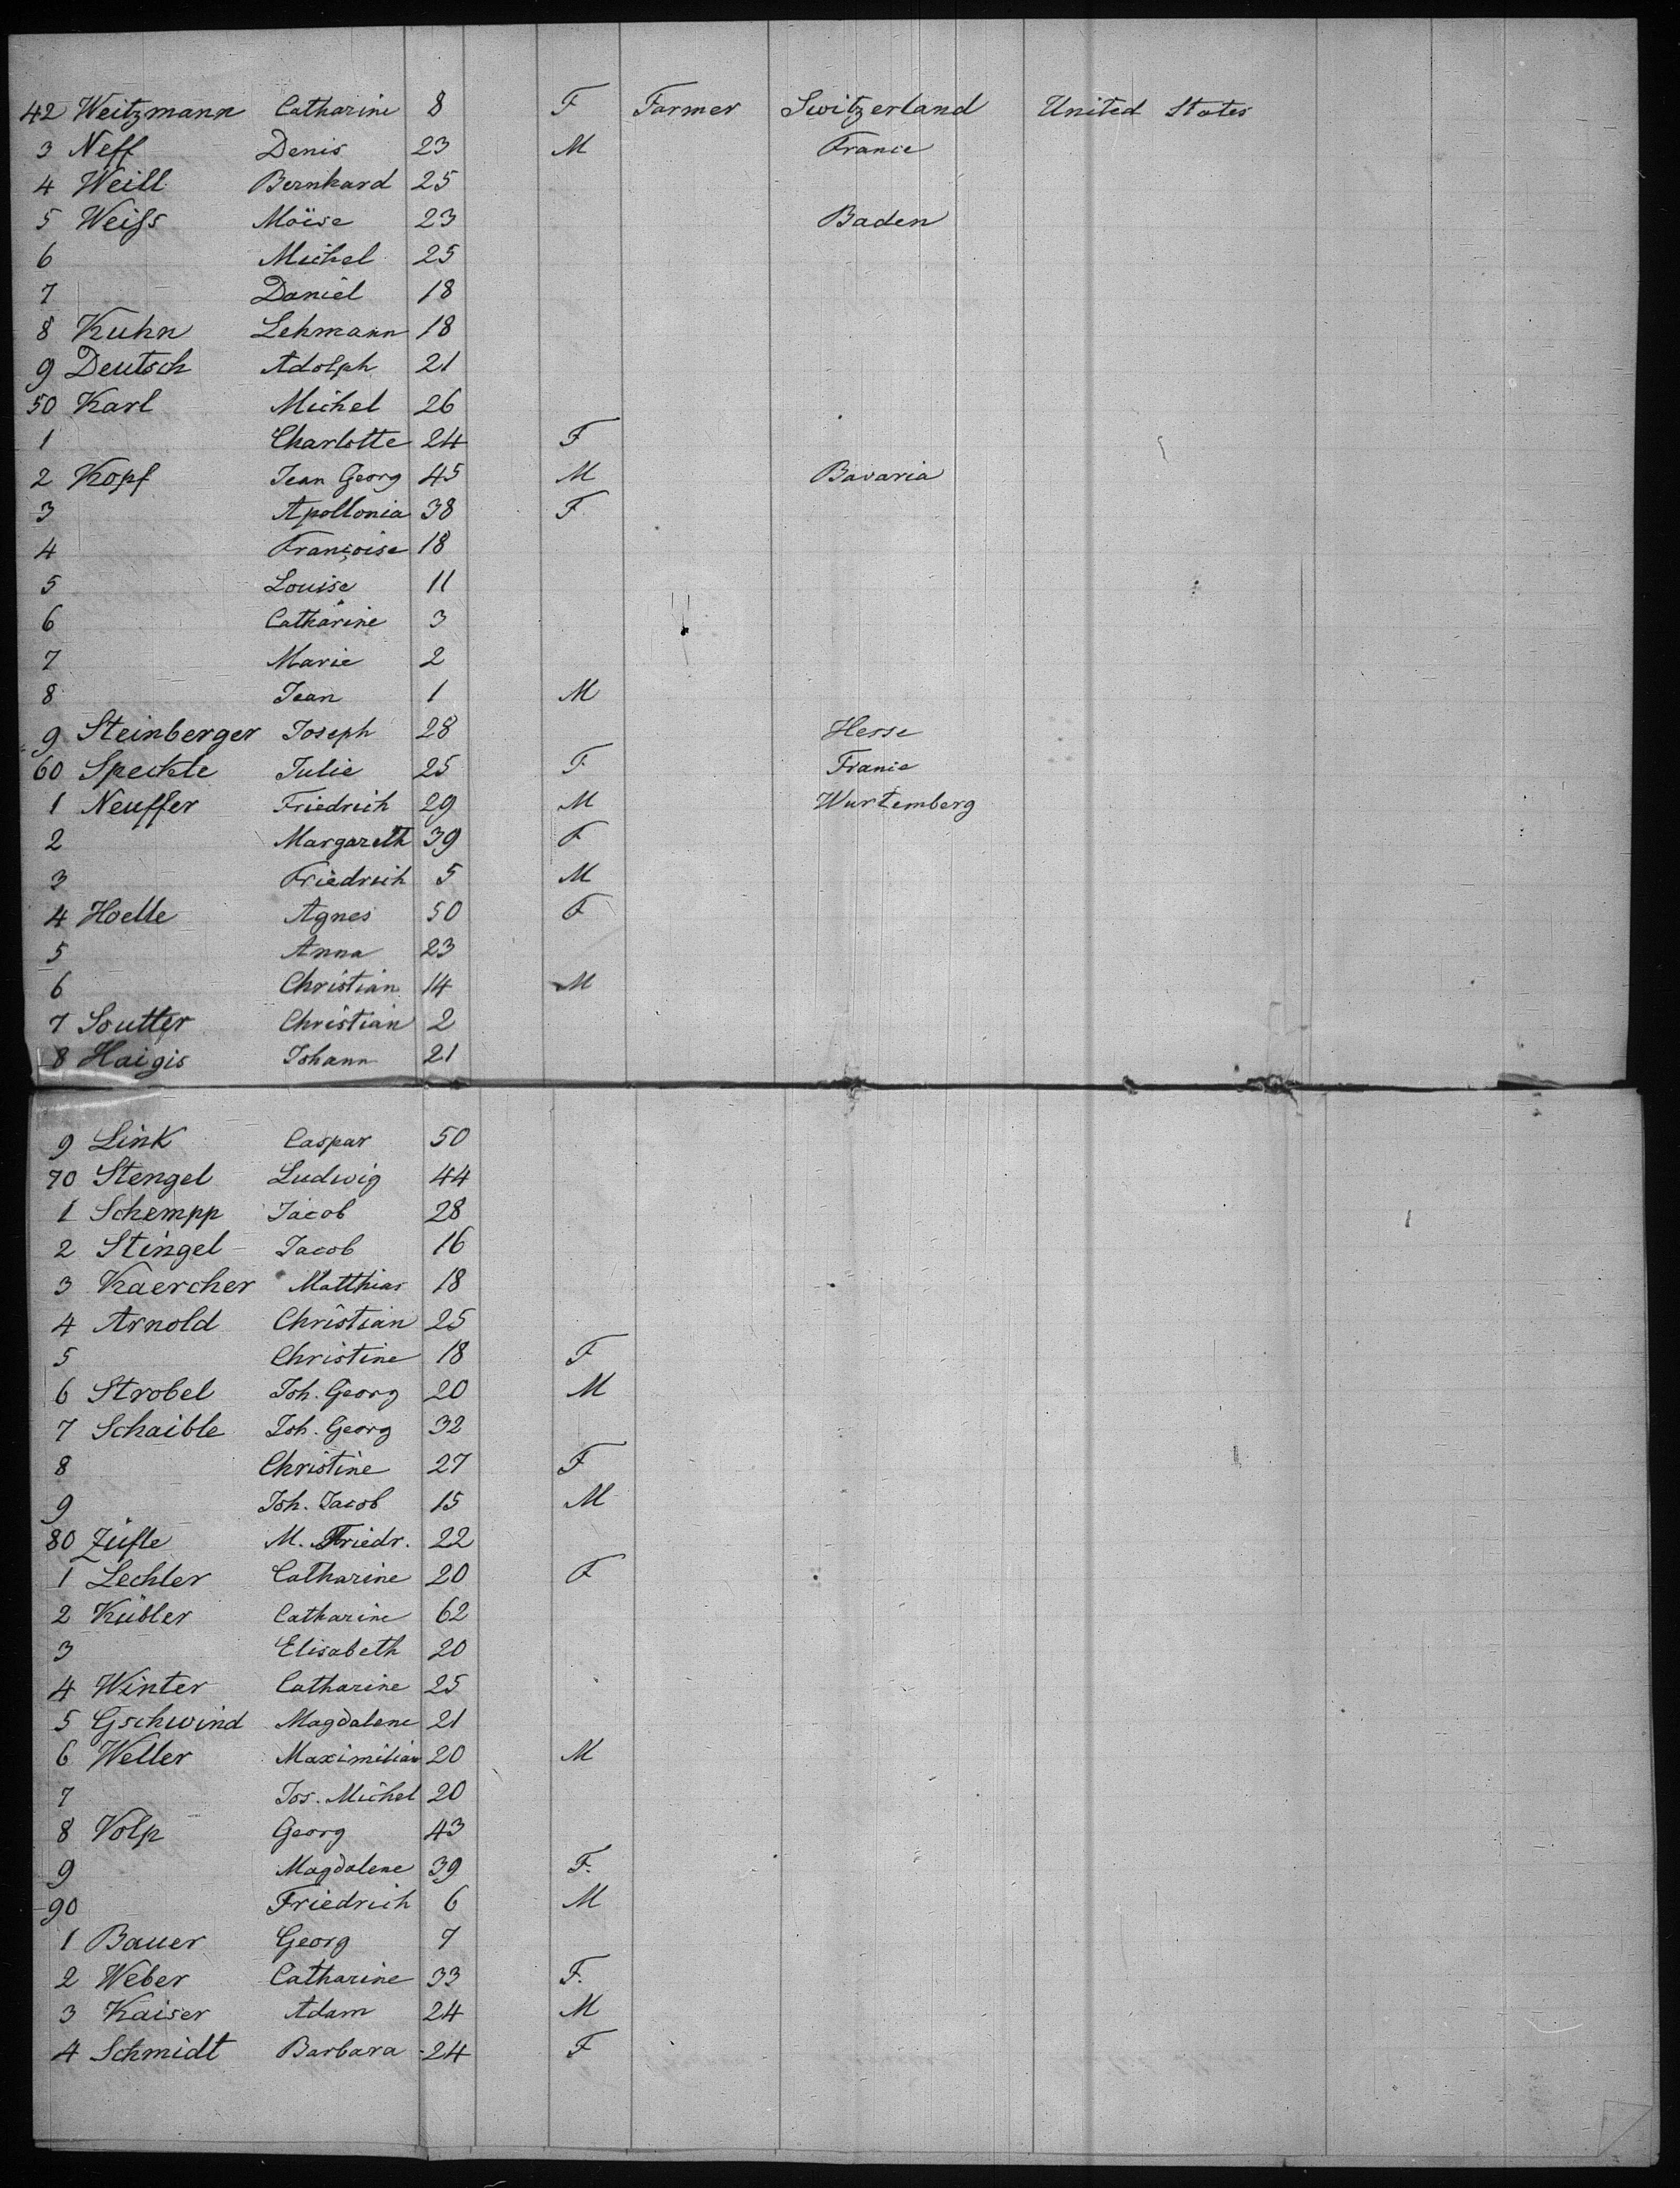 42 Weitzmann Catharine 8 F Farmer Switzerland United States
3 Neff Denis 23 M France
4 Weill Bernhard 25
5 Weiſs Moïse 23 Baden
6 Michel 25
7 Daniel 18
8 Kuhn Lehmann 18
9 Deutsch Adolph 21
50 Karl Michel 26
1 Charlotte 24 F
2 Kopf Jean Georg 45 M Bavaria
3 Apollonia 38 F
4 Françoise 18
5 Louise 11
6 Catharine 3
7 Marie 2
8 Jean 1 M
9 Steinberger Joseph 28 Hesse
60 Speckle Julie 25 F France
1 Neuffer Friedrich 29 M Wurtemberg
2 Margareth 39 F
3 Friedrich 5 M
4 Hoelle Agnes 50 F
5 Anna 23
6 Christian 14 M
7 Soutter Christian 2
8 Haigis Johann 21
9 Link Caspar 50
70 Stengel Ludwig 44
1 Schempp Jacob 28
2 Stingel Jacob 16
3 Kaercher Matthias 18
4 Arnold Christian 25
5 Christine 18 F
6 Strobel Joh. Georg 20 M
7 Schaible Joh. Georg 32
8 Christine 27 F
9 Joh. Jacob 15 M
80 Züfle M. Friedr. 22
1 Lechler Catharine 20 F
2 Kübler Catharine 62
3 Elisabeth 20
4 Winter Catharine 25
5 Gschwind Magdalene 21
6 Weller Maximilian 20 M
7 Jos. Michel 20
8 Volp Georg 43
9 Magdalene 39 F.
90 Friedrich 6 M
1 Bauer Georg 7
2 Weber Catharine 33 F.
3 Kaiser Adam 24 M
4 Schmidt Barbara 24 F